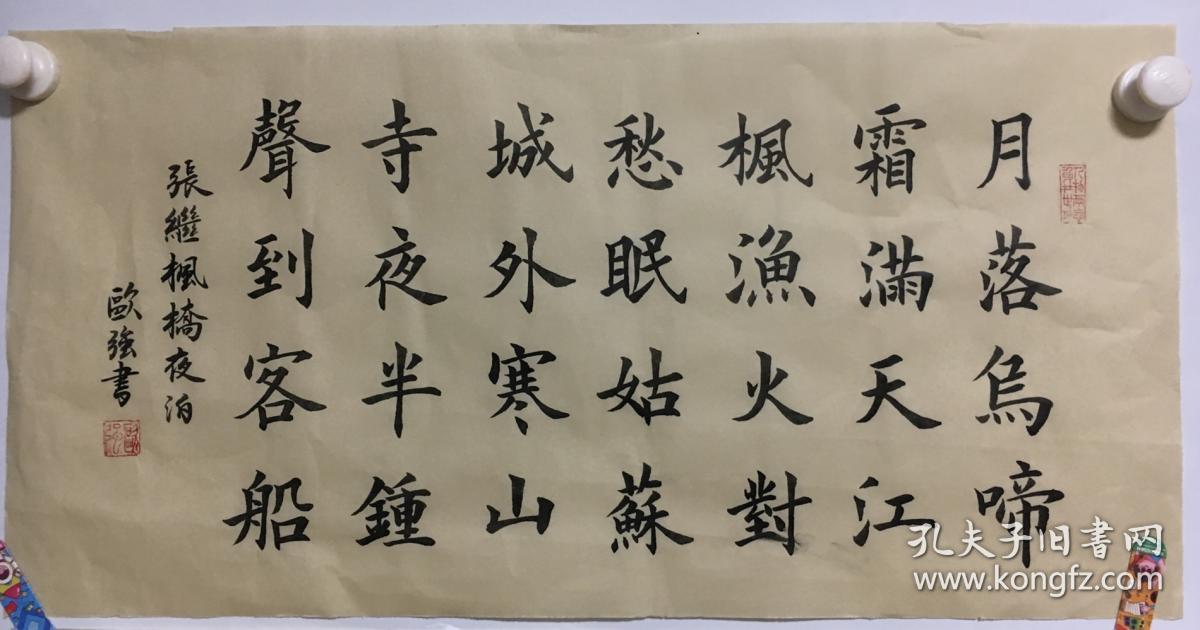 月落烏啼
霜滿天江
楓漁火對
愁眠姑蘇
城外寒山
寺夜半鍾
聲到客船
張繼楓橋夜泊
歐強書
孔夫子旧书网
www.kongfz.com